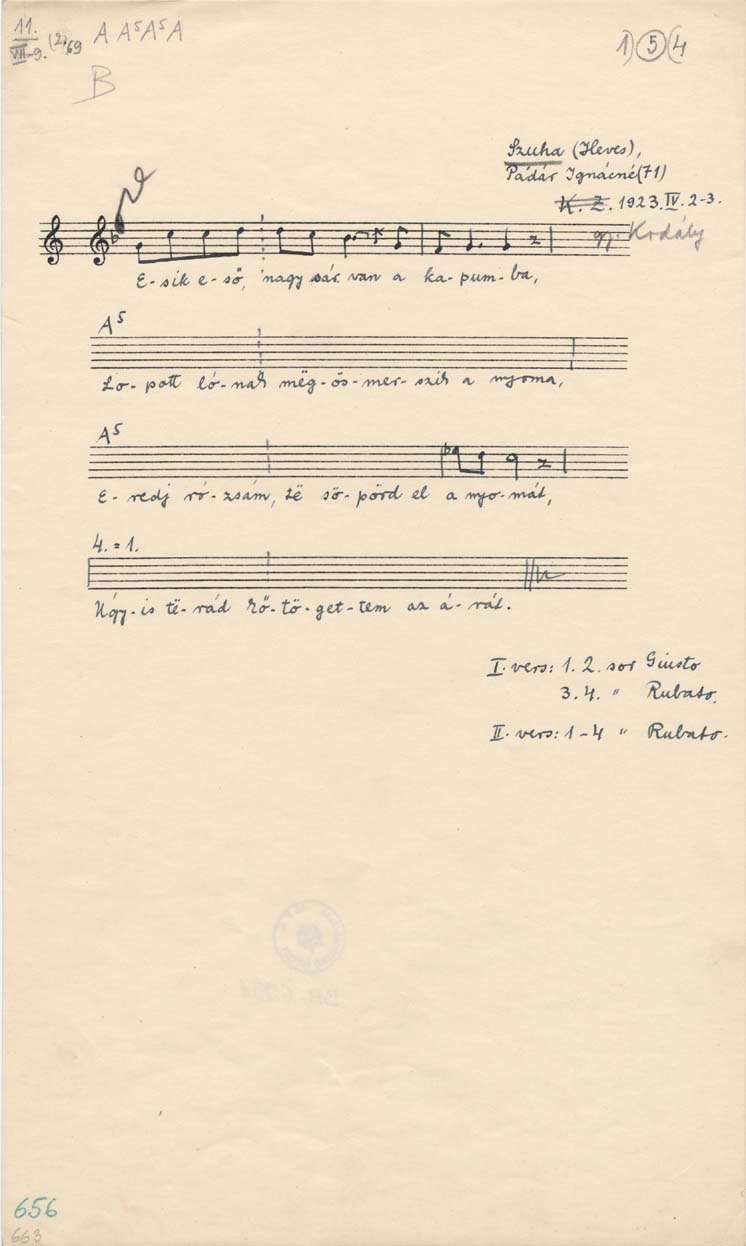 11.
VII-9. (2)69
A A⁵A⁵A
1) 5 (4
B
Szuha (Heves),
Pádár Ignácné (71)
K. Z. 1923.IV.2-3.
gy. Kodály
E-sik e-ső, nagy sár van a ka-pum-ba,
A⁵
Lo-pott ló-nak mëg-ös-mer-szik a nyoma,
A⁵
E-redj ró-zsám, të sö-pörd el a nyo-mát,
4. = 1.
Úgy-is të-rád kő-tö-get-tem az á-rát.
I. vers: 1. 2. sor Giusto
3. 4. " Rubato.
II. vers: 1-4 " Rubato.
656
663